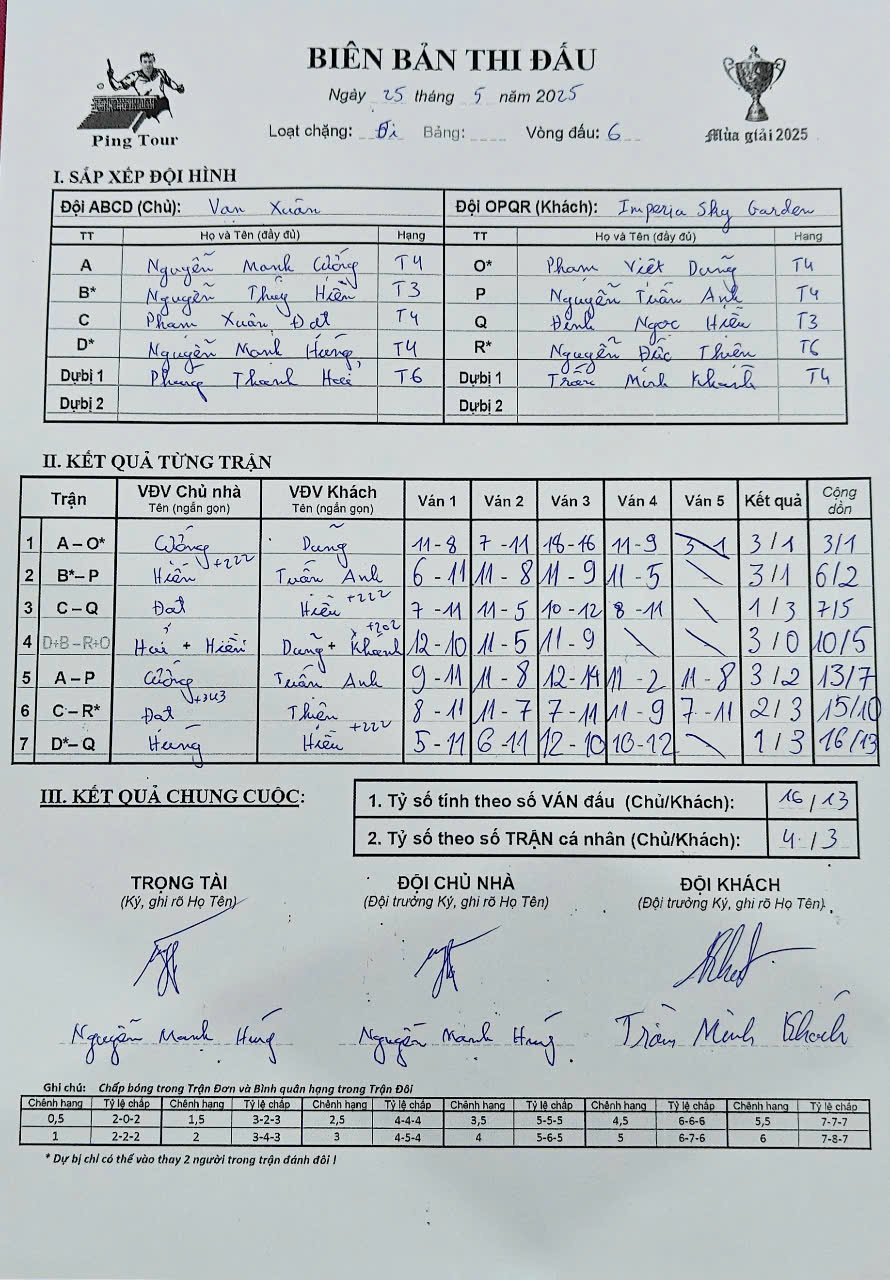 BIÊN BẢN THI ĐẤU
Ngày 25 tháng 5 năm 2025
Ping Tour
Loạt chặng: Đi Bảng: Vòng đấu: 6
Mùa giải 2025
I. SẮP XẾP ĐỘI HÌNH
Đội ABCD (Chủ): Vạn Xuân Đội OPQR (Khách): Imperia Sky Garden
TT Họ và Tên (đầy đủ) Hạng TT Họ và Tên (đầy đủ) Hạng
A Nguyễn Mạnh Cường T4 O* Phạm Việt Dũng T4
B* Nguyễn Thúy Hiền T3 P Nguyễn Tuấn Anh T4
C Phạm Xuân Đạt T4 Q Đinh Ngọc Hiếu T3
D* Nguyễn Mạnh Hùng T4 R* Nguyễn Đức Thiện T6
Dự bị 1 Phùng Thanh Hải T6 Dự bị 1 Trần Minh Khánh T4
Dự bị 2 Dự bị 2
II. KẾT QUẢ TỪNG TRẬN
Trận VĐV Chủ nhà Tên (ngắn gọn) VĐV Khách Tên (ngắn gọn) Ván 1 Ván 2 Ván 3 Ván 4 Ván 5 Kết quả Cộng dồn
1 A – O* Cường Dũng 11-8 7-11 18-16 11-9 3 1 3/1 3/1
2 B*– P Hiền +222 Tuấn Anh 6-11 11-8 11-9 11-5 3/1 6/2
3 C – Q Đạt Hiếu +222 7-11 11-5 10-12 8-11 1/3 7/5
4 D+B – R+O Hải + Hiền Dũng + Khánh +202 12-10 11-5 11-9 3/0 10/5
5 A – P Cường Tuấn Anh 9-11 11-8 12-14 11-2 11-8 3/2 13/7
6 C – R* Đạt +343 Thiện 8-11 11-7 7-11 11-9 7-11 2/3 15/10
7 D*– Q Hùng Hiếu +222 5-11 6-11 12-10 10-12 1/3 16/13
III. KẾT QUẢ CHUNG CUỘC:
1. Tỷ số tính theo số VÁN đấu (Chủ/Khách): 16/13
2. Tỷ số theo số TRẬN cá nhân (Chủ/Khách): 4/3
TRỌNG TÀI ĐỘI CHỦ NHÀ ĐỘI KHÁCH
(Ký, ghi rõ Họ Tên) (Đội trưởng Ký, ghi rõ Họ Tên) (Đội trưởng Ký, ghi rõ Họ Tên)
Nguyễn Mạnh Hùng Nguyễn Mạnh Hùng Trần Minh Khánh
Ghi chú: Chấp bóng trong Trận Đơn và Bình quân hạng trong Trận Đôi
Chênh hạng Tỷ lệ chấp Chênh hạng Tỷ lệ chấp Chênh hạng Tỷ lệ chấp Chênh hạng Tỷ lệ chấp Chênh hạng Tỷ lệ chấp Chênh hạng Tỷ lệ chấp
0,5 2-0-2 1,5 3-2-3 2,5 4-4-4 3,5 5-5-5 4,5 6-6-6 5,5 7-7-7
1 2-2-2 2 3-4-3 3 4-5-4 4 5-6-5 5 6-7-6 6 7-8-7
* Dự bị chỉ có thể vào thay 2 người trong trận đánh đôi !